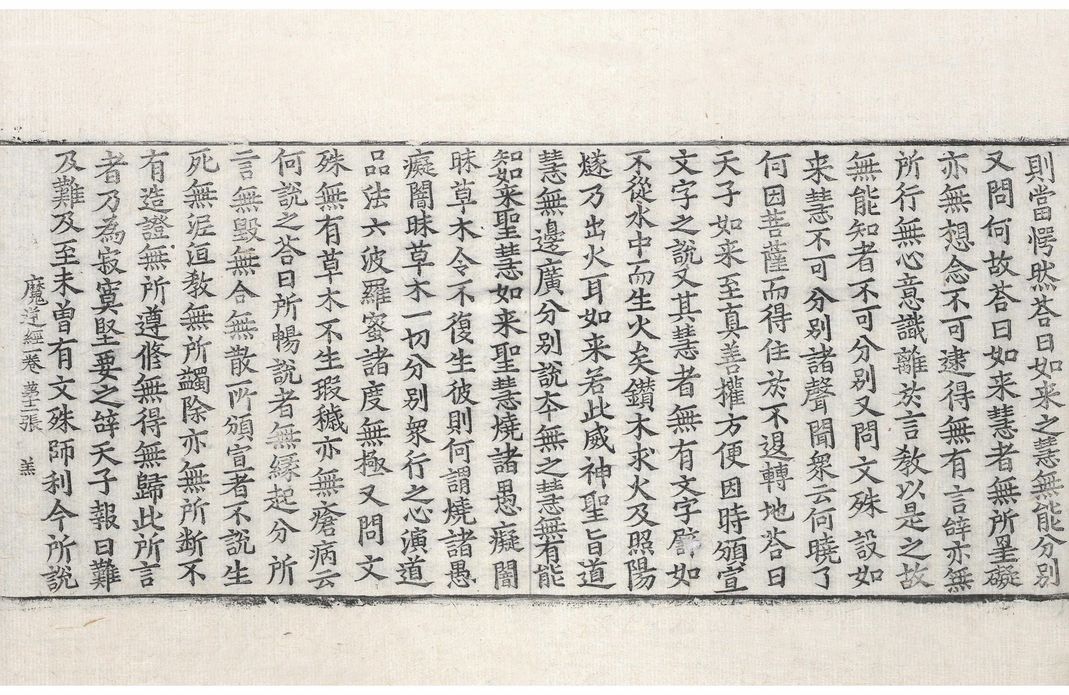 則當愕然荅曰如来之慧無能分别
又問何故荅曰如来慧者無所罣礙
亦無想念不可逮得無有言辝亦無
所行無心意識離於言教以是之故
無能知者不可分别又問文殊設如
来慧不可分别諸聲聞衆云何曉了
何因菩薩而得住於不退轉地荅曰
天子如来至真善權方便因時頒宣
文字之說又其慧者無有文字譬如
不從水中而生火矣鑽木求火及照陽
燧乃出火耳如来若此威神聖旨道
慧無邊廣分别說夲無之慧無有能
知如来聖慧如来聖慧燒諸愚癡闇
昧草木令不復生彼則何謂燒諸愚
癡闇昧草木一切分别衆行之心演道
品法六波羅蜜諸度無極又問文
殊無有草木不生瑕穢亦無瘡病云
何說之荅曰所暢說者無緣起分所
言無毀無合無散所頒宣者不說生
死無泥洹教無所蠲除亦無所断不
有造證無所遵修無得無歸此所言
者乃為寂寞堅要之辝天子報曰難
及難及至未曽有文殊師利今所說
魔逆經卷 苐二張 羔